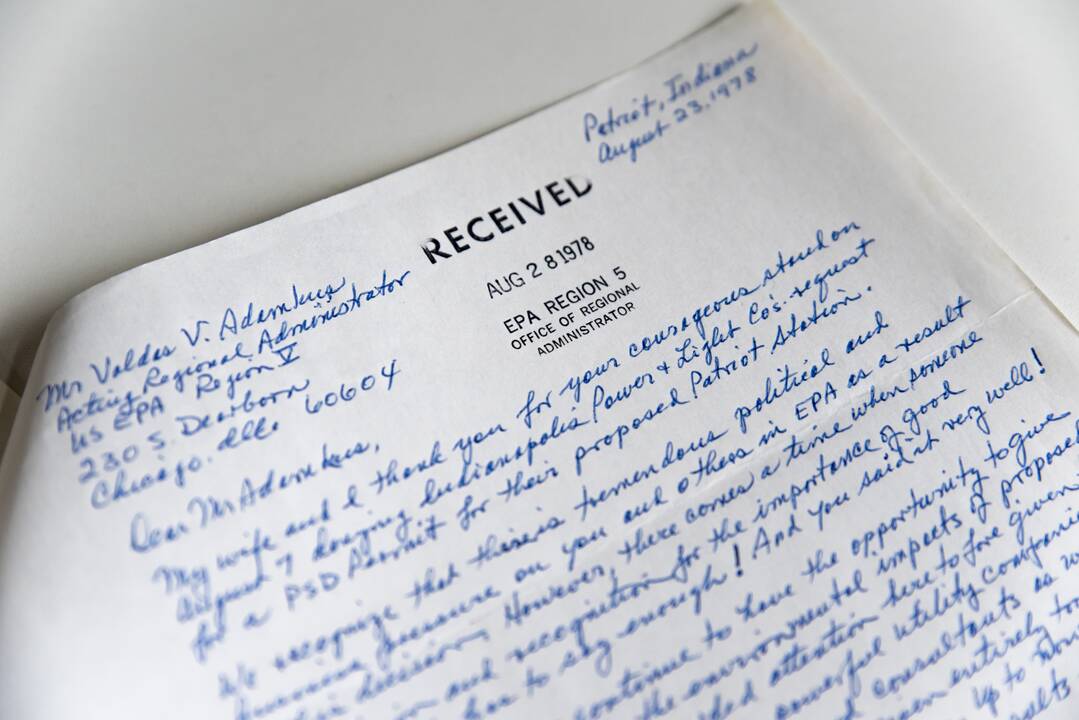 Patriot, Indiana
August 23, 1978
RECEIVED
AUG 28 1978
EPA REGION 5
OFFICE OF REGIONAL
ADMINISTRATOR
Mr Valdas V. Adamkus
Acting Regional Administrator
US EPA Region V
230 S. Dearborn
Chicago. Ill. 60604
Dear Mr Adamkus,
My wife and I thank you for your courageous stand on
August 7 denying Indianapolis Power & Light Co's. request
for a PSD Permit for their proposed Patriot Station.
We recognize that there is tremendous political and
pressure on you and others in EPA as a result
decision. However, there comes a time when someone
and recognition for the importance of good
has to say enough! And you said it very well!
continue to have the opportunity to give
the environmental impacts of proposed
attention here to fore given
powerful utility companies
consultants as
entirely too
up to